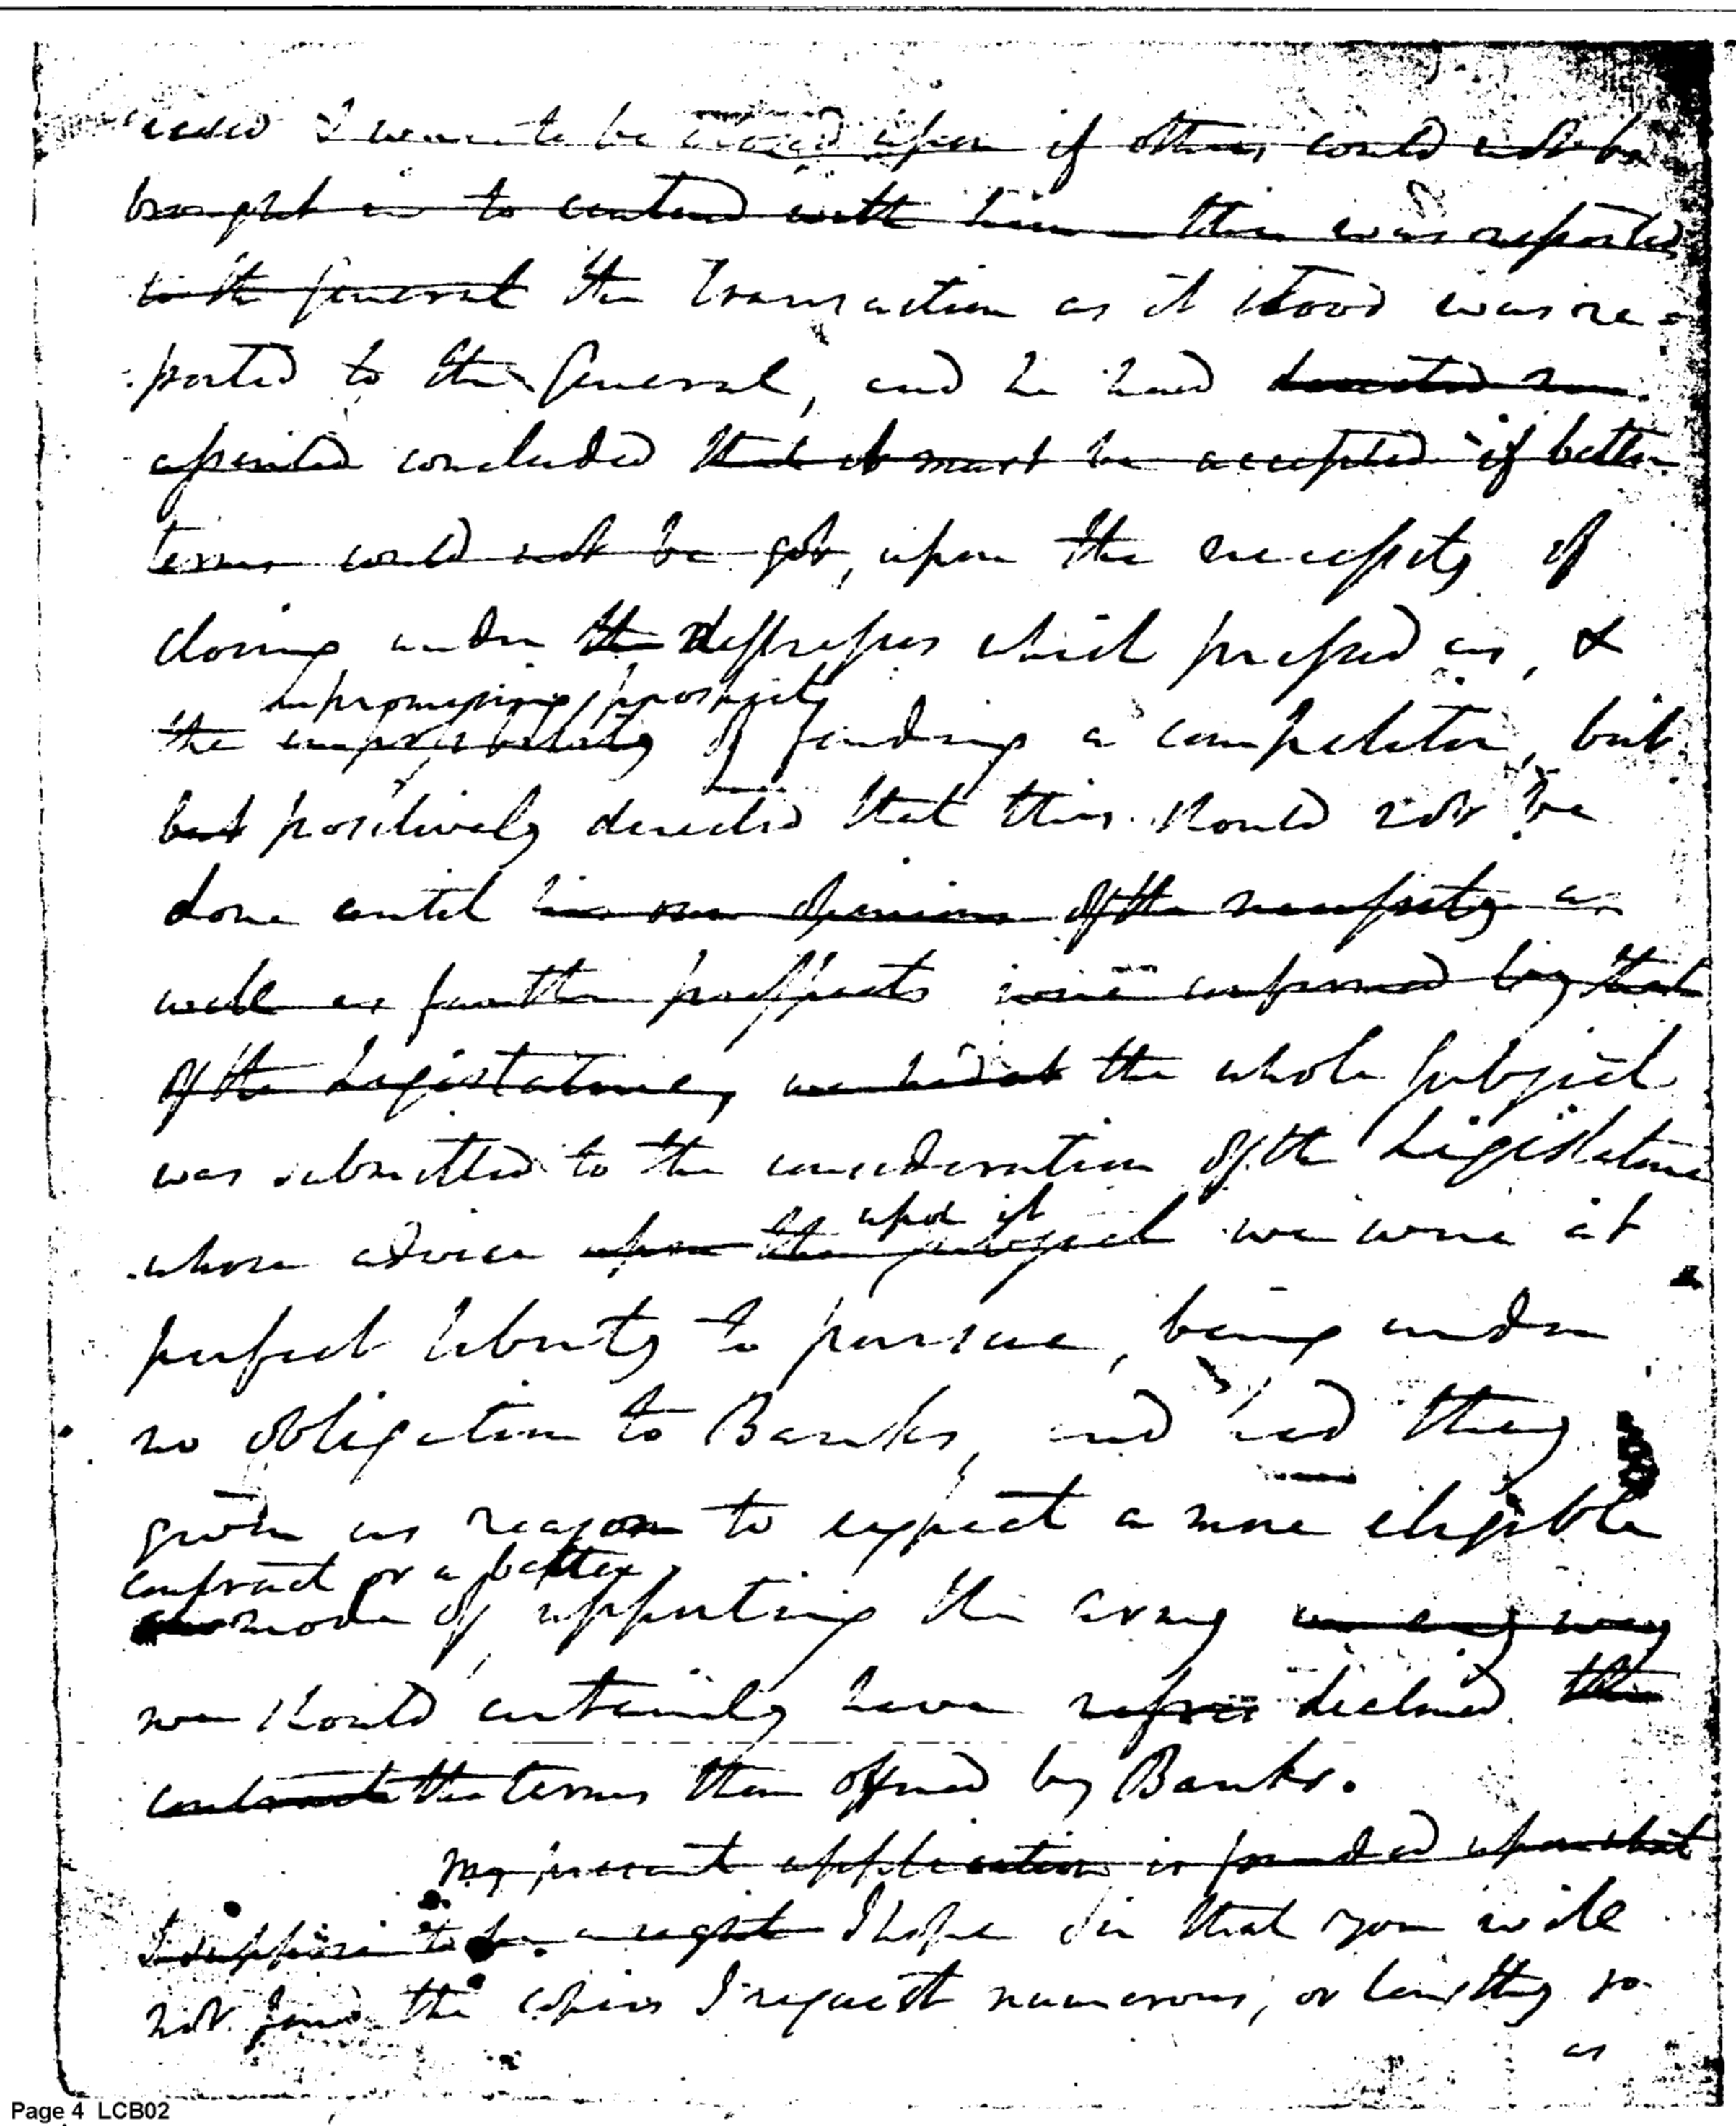 I were to be agreed upon if others could not be
brought in to contend with him – this was reported
to the General the Transaction as it stood was re-
ported to the General, and he had directed
concluded that it must be accepted if better
terms could not be got, upon the necessity of
closing under the distresses which pressed us, &
unpromising prospects
the improbability of finding a competitor, but
but positively directed that this should not be
done until his own opinion of the necessity as
well as further prospects were confirmed by that
of the Legislature, the whole subject
was submitted to the consideration of the Legislature
upon it
whose advice upon the subject we were at
perfect liberty to pursue, being under
no obligation to Banks, and had they
given us reason to expect a more eligible
contract or a better
mode of supporting the army in any way
we should certainly have declined the
contract the terms then offered by Banks.
My present application is founded upon what
I suppose to be a right I hope Sir that you will
not find the copies I request numerous, or lengthy so
as
Page 4 LCB02